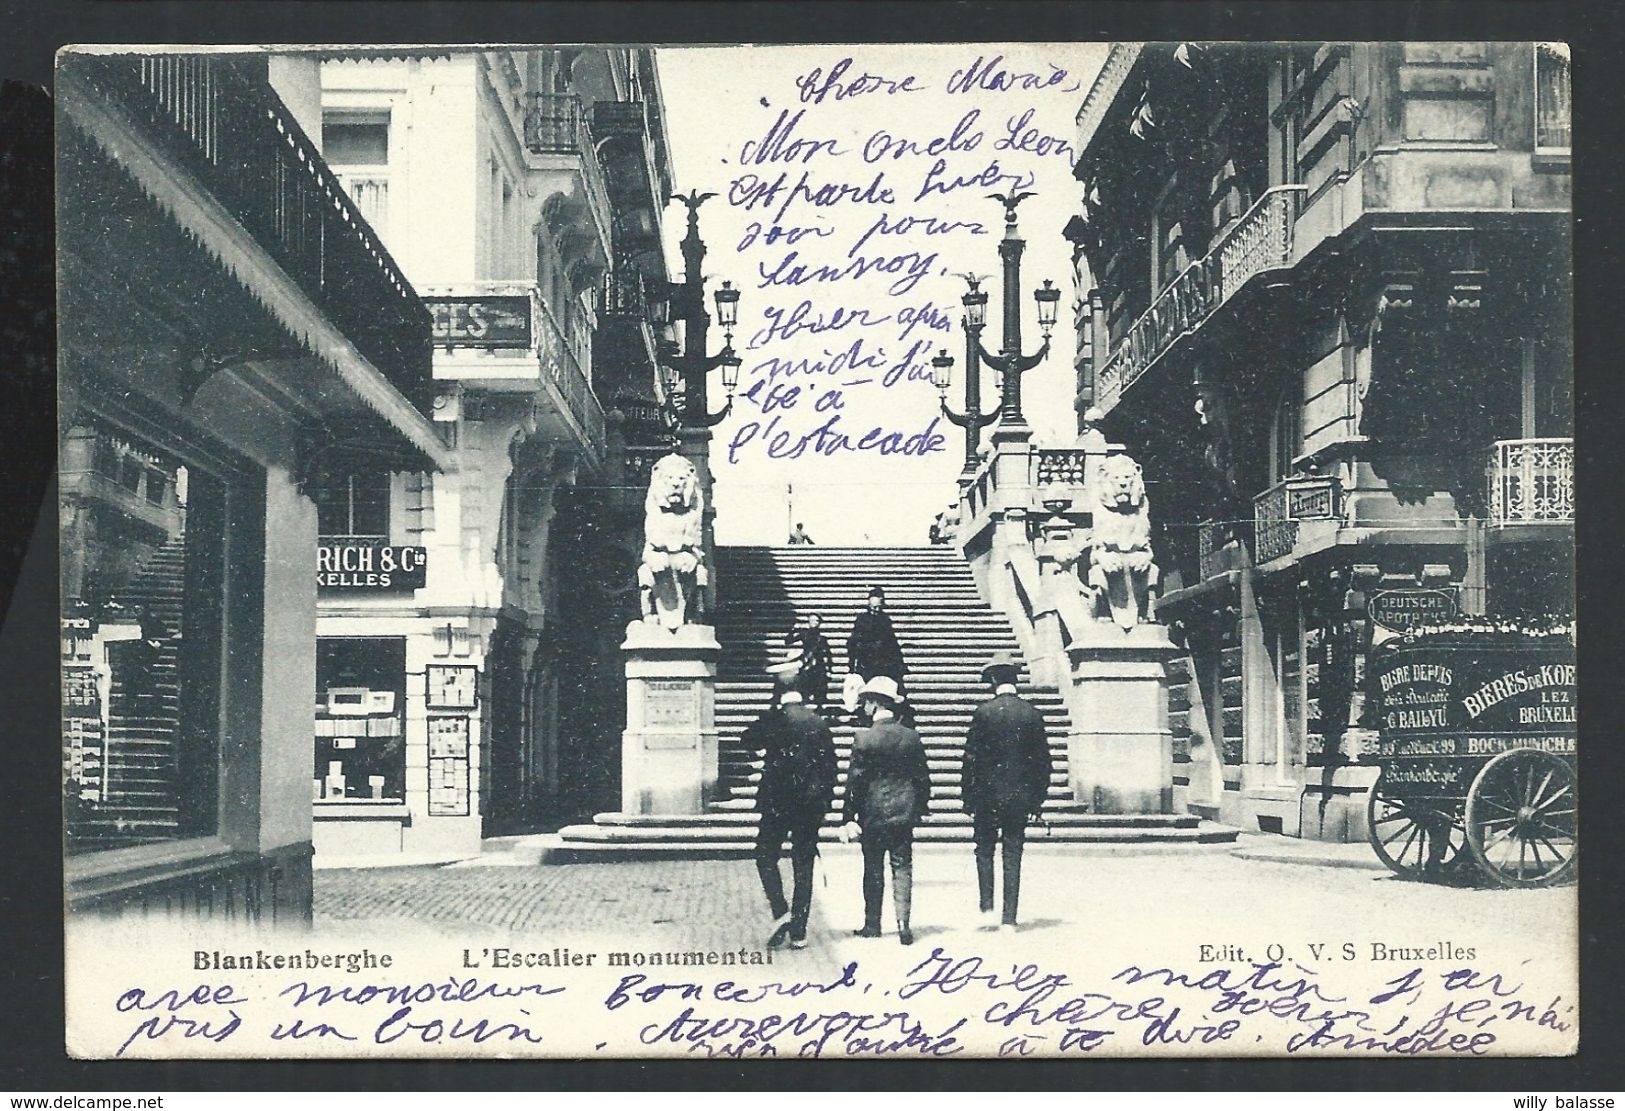 Chere Maria
Mon oncle Leon
est parte hier
soir pour
Lannoy.
Hier aprè
midi j'ai
été à
l'estacade
CES
RICH & Cie
XELLES
DEUTSCHE
APOTHEKE
BIERE DEPUIS
BIÈRES DE KOE
LEZ
BRUXELL
BOCK-MUNICH &
Blankenberghe
Blankenberghe L'Escalier monumental Edit. O. V. S Bruxelles
avec monsieur Hier matin j'ai
pris un bain. Aurevoir, chère soeur, je n'ai
rien d'autre à te dire. Amédée
delcampe.net
willy balasse